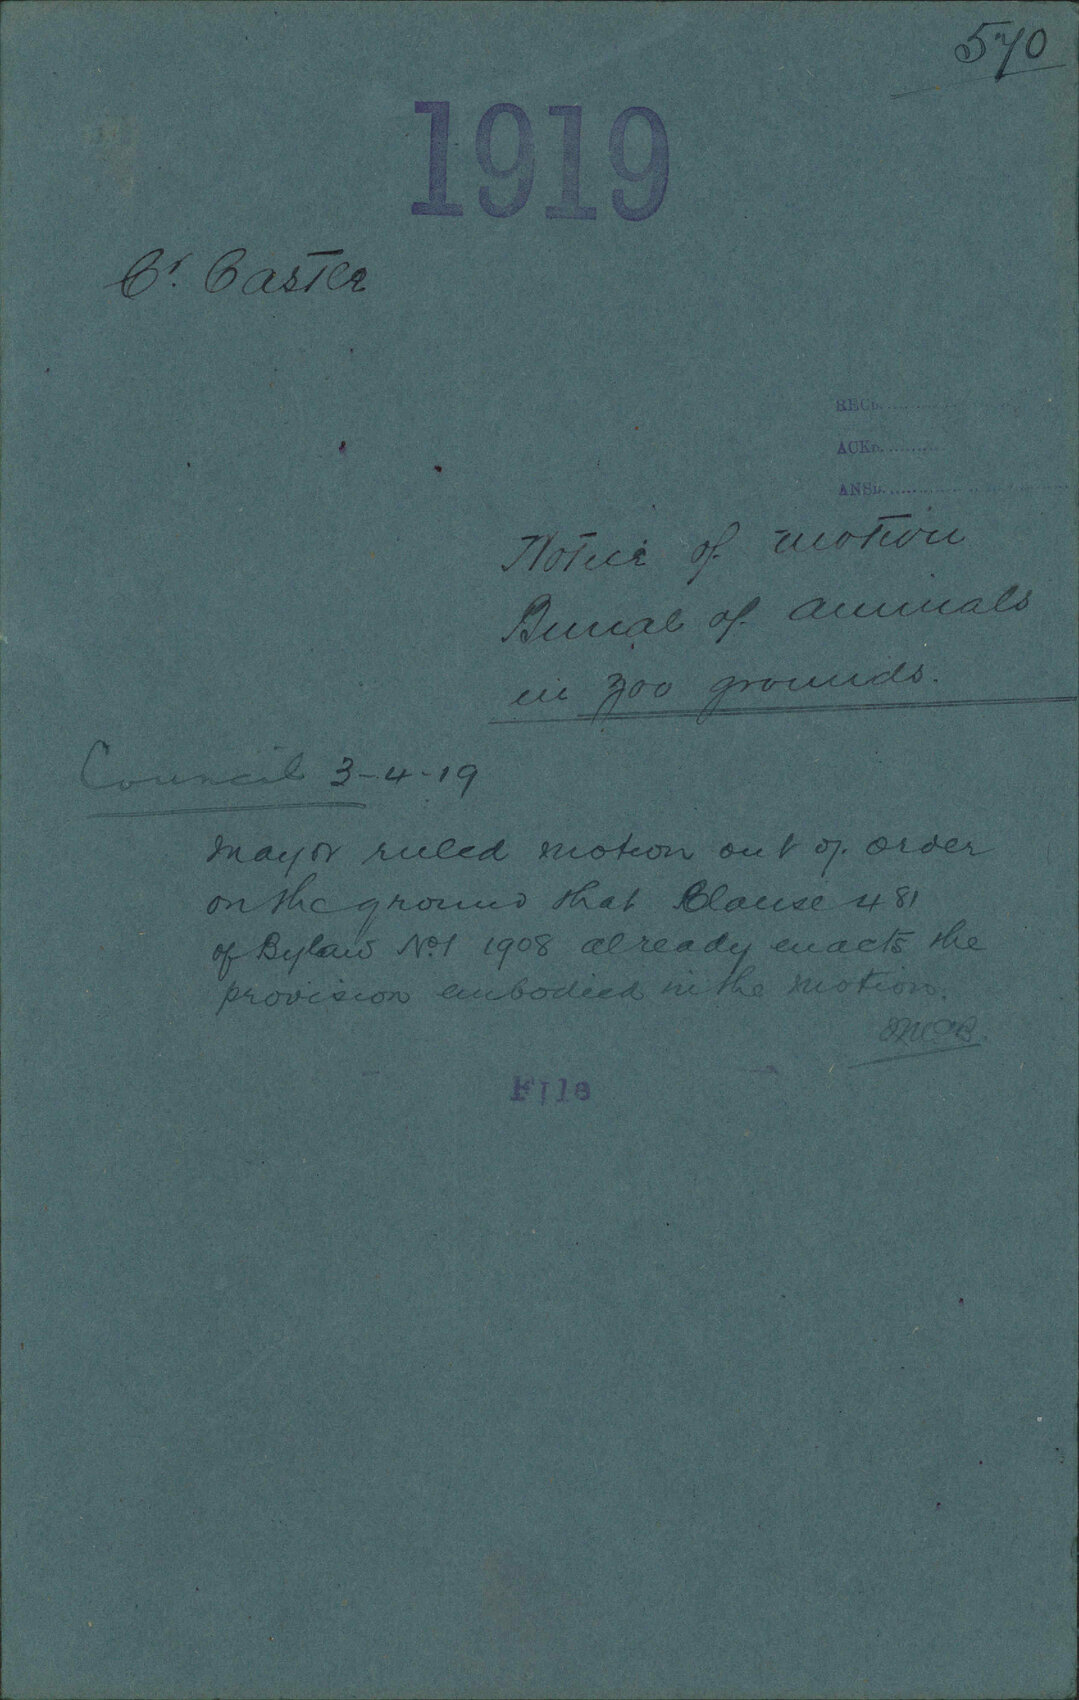 570
1919
Cr. Castle
RECD.
ACKD.
ANSD.
Notice of motion
Burial of animals
in Zoo grounds.
Council 3-4-19
Mayor ruled motion out of order
on the ground that Clause 481
of Bylaw No. 1 1908 already enacts the
provision embodied in the motion.
File